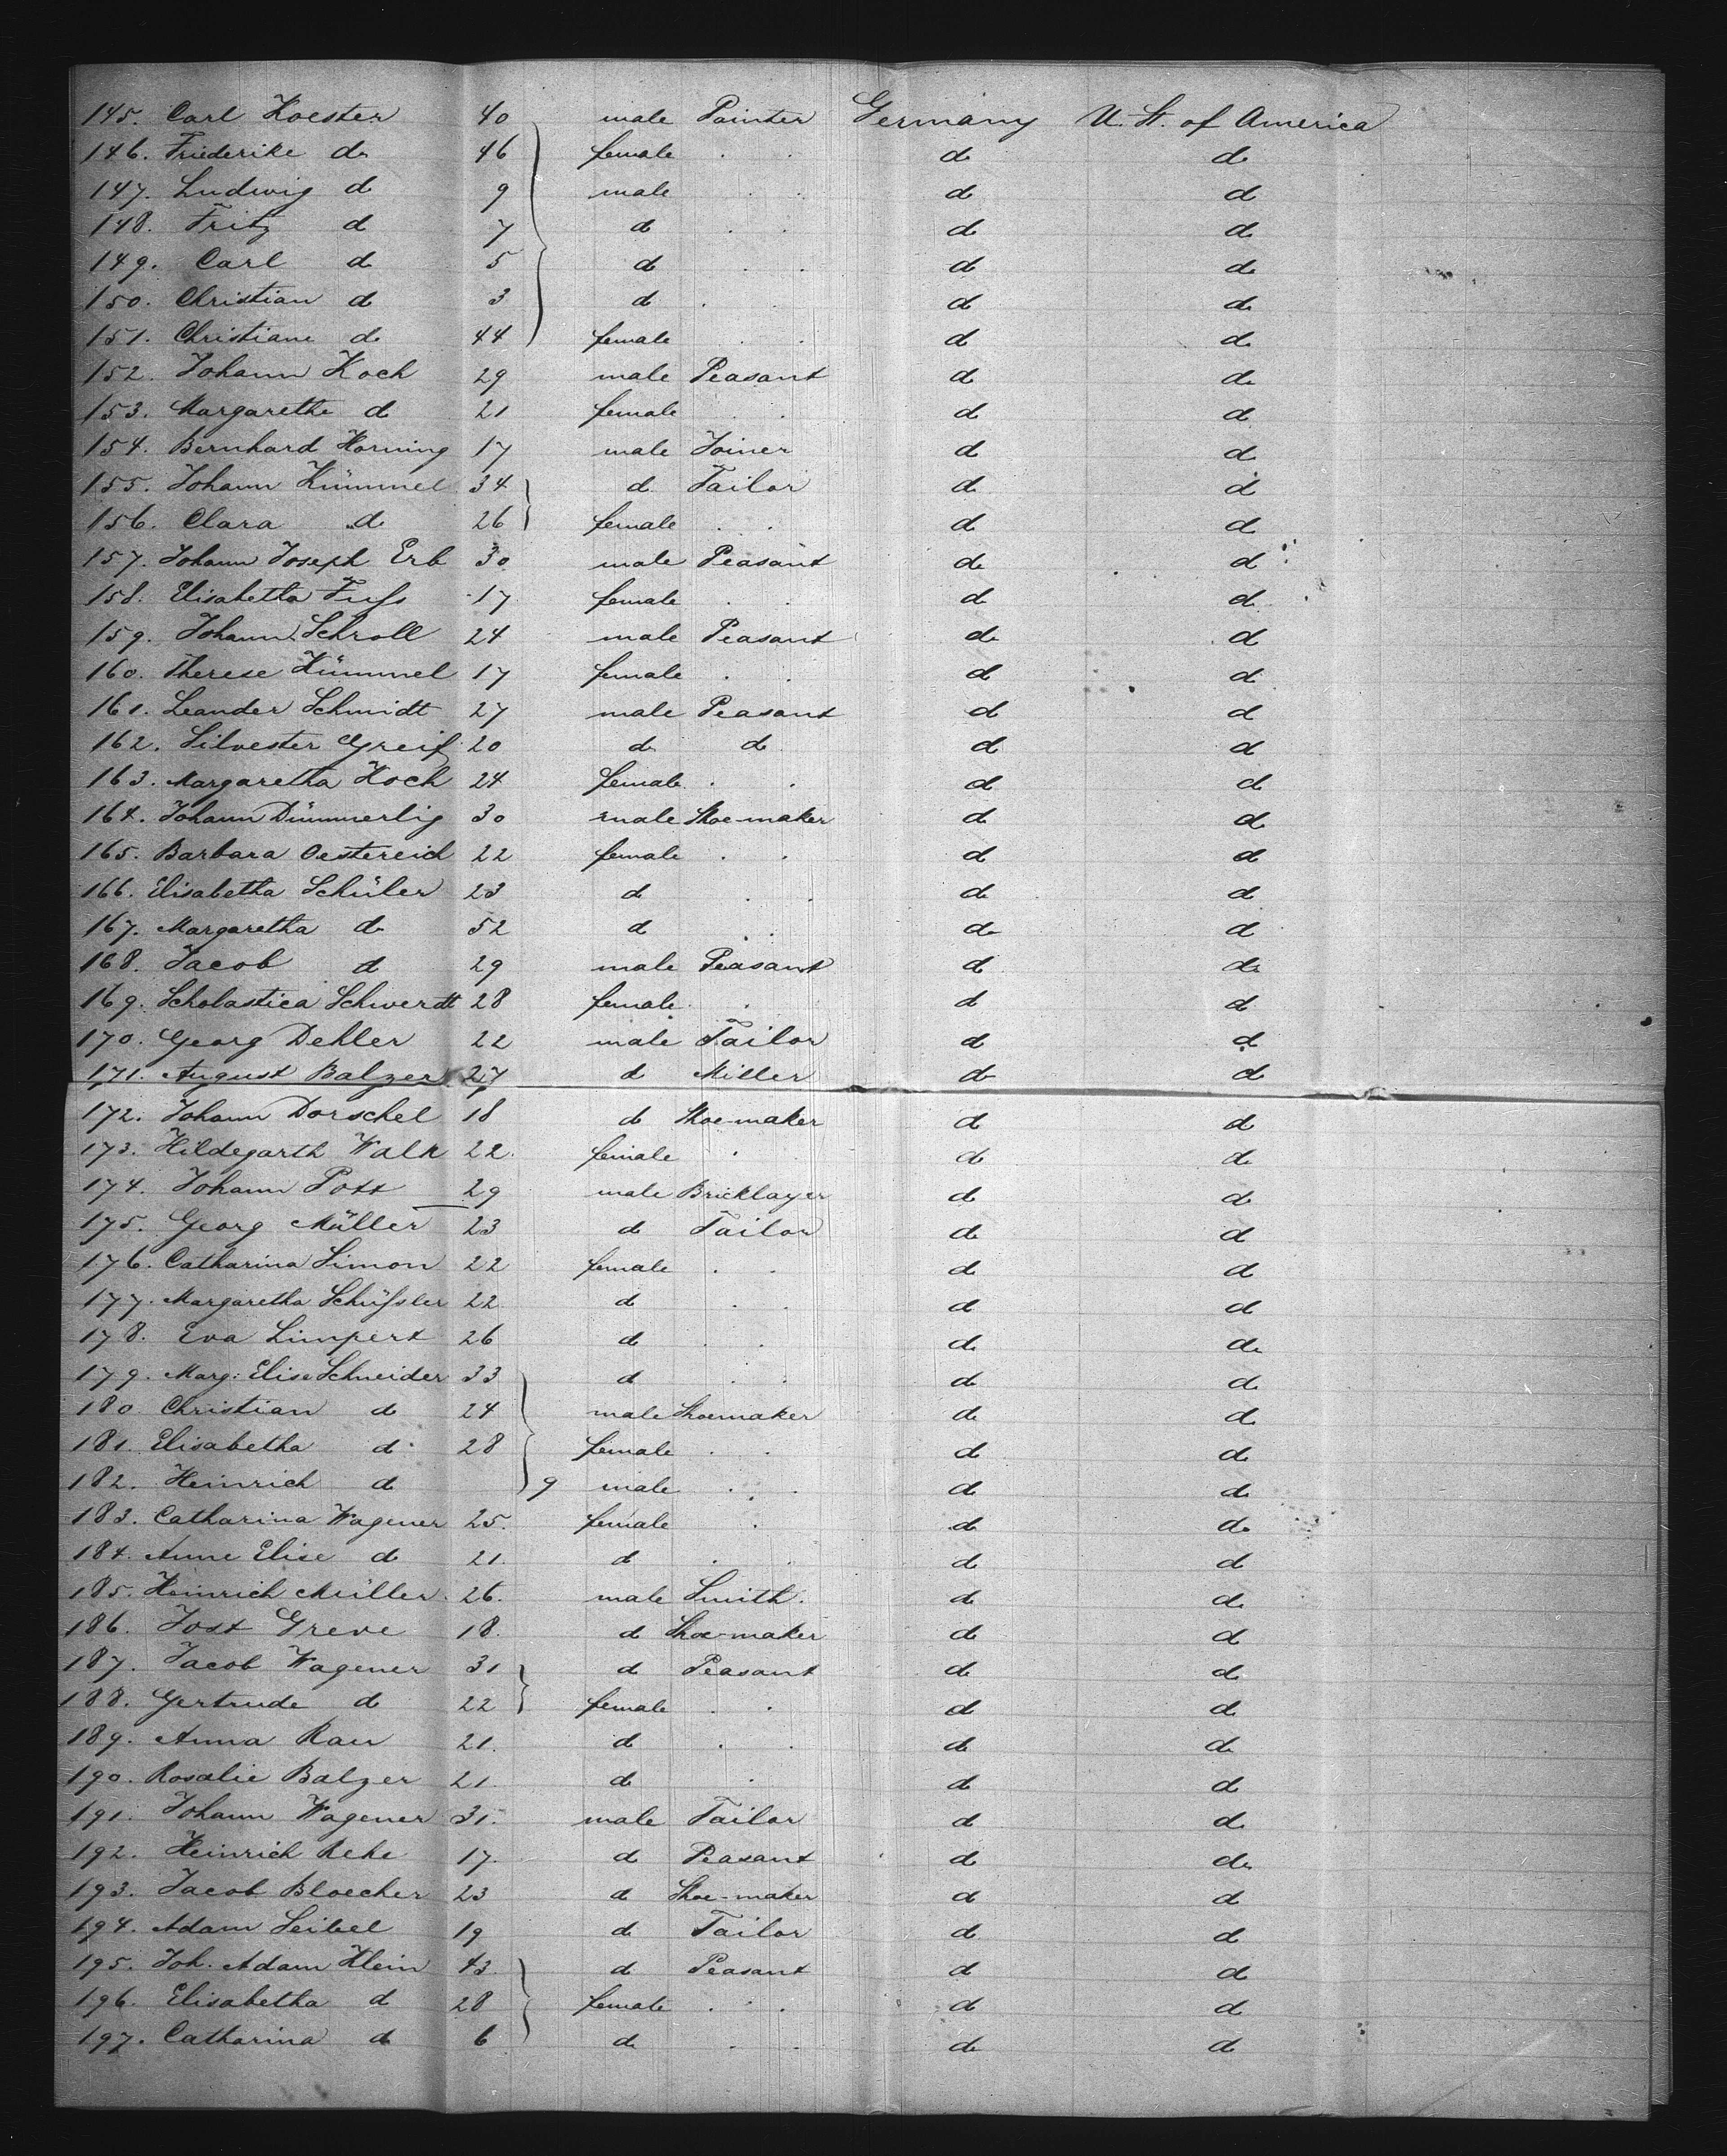 145. Carl Koester 40 male Painter Germany U. St. of America
146. Friederike do 46 female d d
147. Ludwig d 9 male d d
148. Fritz d 7 d d d
149. Carl d 5 d d d
150. Christian d 3 d d d
151. Christiane d 44 female d d
152. Johann Koch 29 male Peasant d d
153. Margarethe d 21 female d d
154. Bernhard Horning 17 male Joiner d d
155. Johann Kümmel 34 d Tailor d d
156. Clara d 26 female d d
157. Johann Joseph Erb 30 male Peasant d d
158. Elisabetha Fuſs 17 female d d
159. Johann Schroll 24 male Peasant d d
160. Therese Kümmel 17 female d d
161. Leander Schmidt 27 male Peasant d d
162. Silvester Greif 20 d d d d
163. Margaretha Koch 24 female d d
164. Johann Dümmerlig 30 male Shoe-maker d d
165. Barbara Oestereich 22 female d d
166. Elisabetha Schüler 23 d d d
167. Margaretha d 52 d d d
168. Jacob d 29 male Peasant d d
169. Scholastica Schwerdt 28 female d d
170. Georg Dehler 22 male Tailor d d
171. August Balzer 27 d Miller d d
172. Johann Dorschel 18 d Shoe-maker d d
173. Hildegarth Walk 22. female d d
174. Johann Post 29 male Bricklayer d d
175. Georg Müller 23 d Tailor d d
176. Catharina Simon 22 female d d
177. Margaretha Schüſsler 22 d d d
178. Eva Limpert 26 d d d
179. Marg: Elise Schneider 33 d d d
180. Christian d 24 male Shoemaker d d
181. Elisabetha d 28 female d d
182. Heinrich d 9 male d d
183. Catharina Wagener 25. female d d
184. Anne Elise d 21. d d d
185. Heinrich Müller 26. male Smith. d d
186. Jost Greve 18. d Shoe-maker d d
187. Jacob Wagener 31 d Peasant d d
188. Gertrude d 22 female d d
189. Anna Rau 21. d d d
190. Rosalie Balzer 21. d d d
191. Johann Wagener 31. male Tailor d d
192. Heinrich Rehe 17. d Peasant d d
193. Jacob Bloecher 23 d Shoe-maker d d
194. Adam Seibel 19 d Tailor d d
195. Joh. Adam Klein 43. d Peasant d d
196. Elisabetha d 28 female d d
197. Catharina d 6 d d d